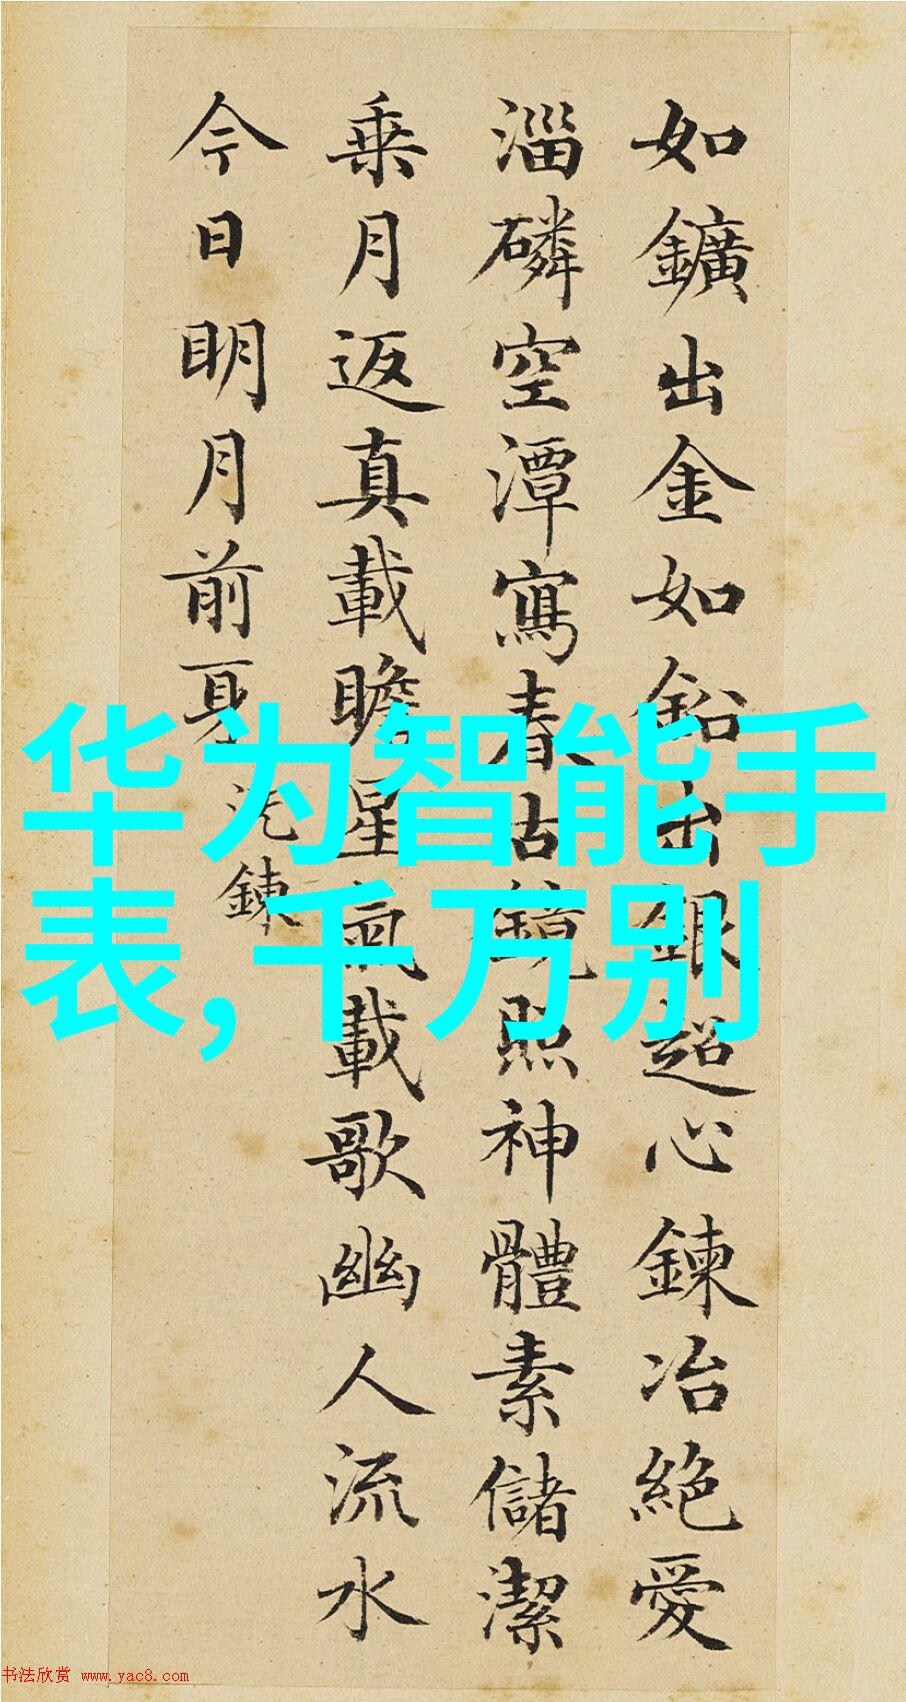 如鑛出金如鉛出銀超心鍊冶絶愛
淄磷空潭寫春古鏡照神體素儲潔
乗月返真載瞻星氣載歌幽人流水
今日明月前身
洗鍊
华为智能手
表,千万别
书法欣赏 www.yac8.com